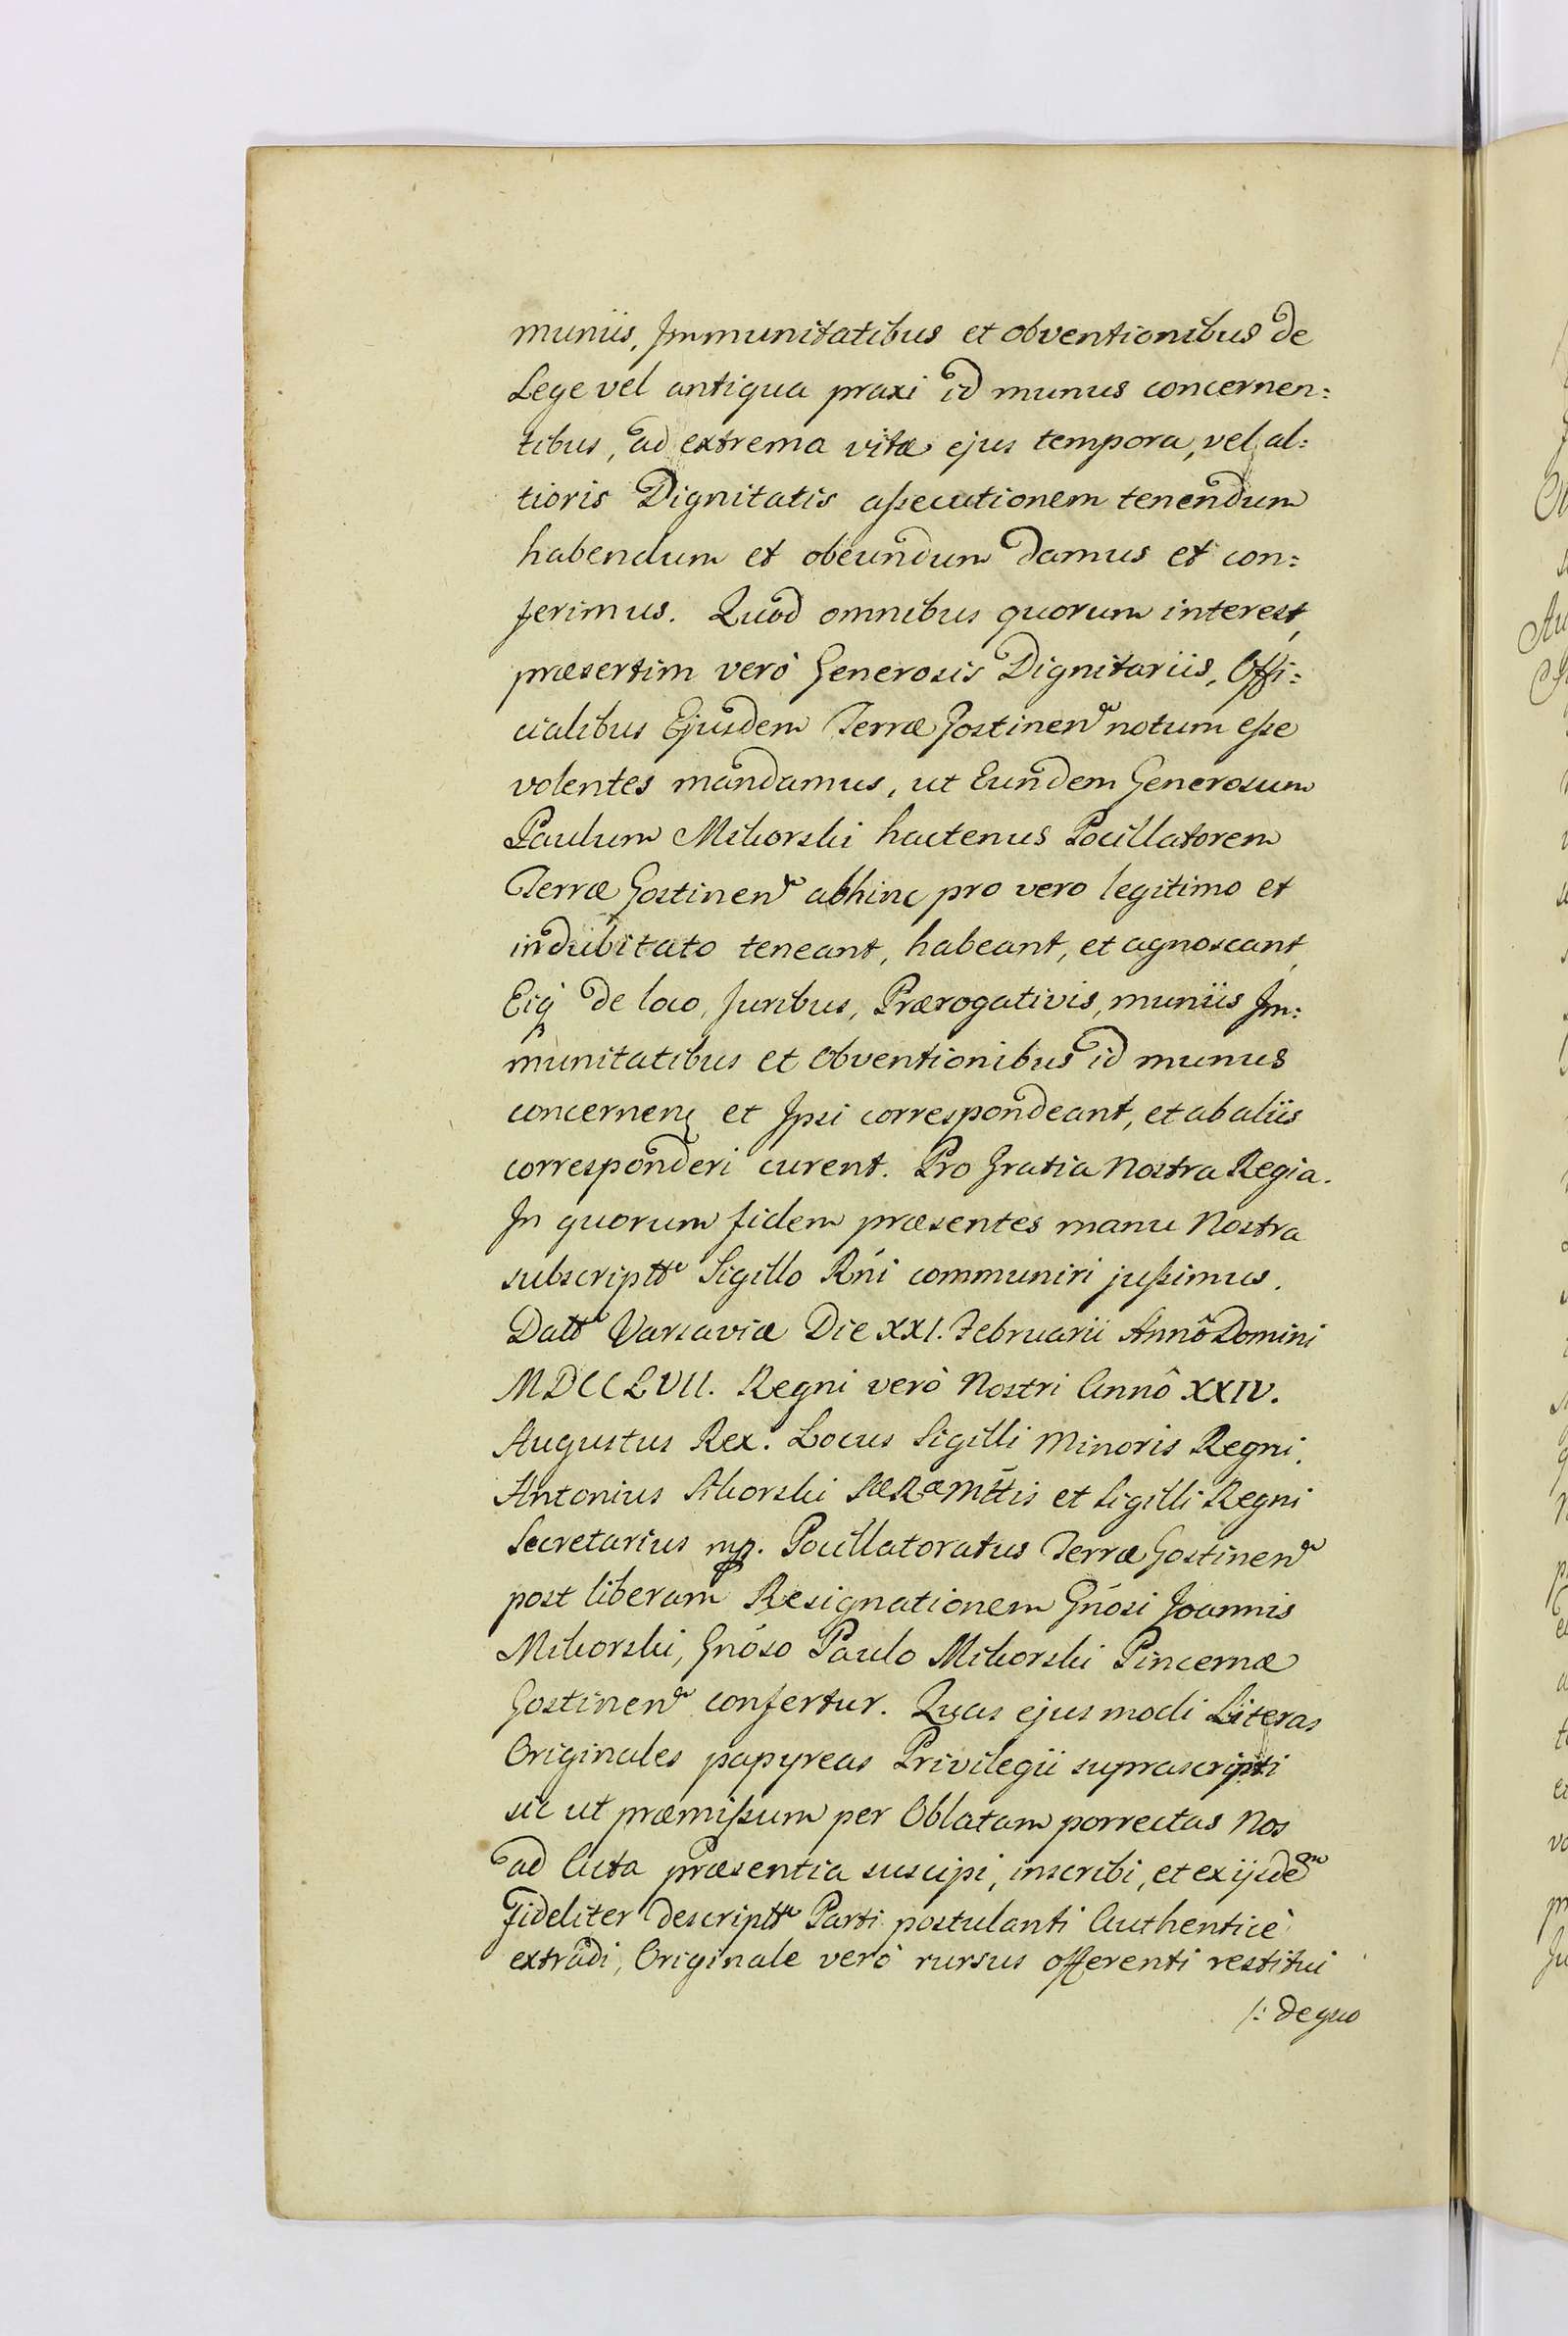 muniis, Immunitatibus et obventionibus de
Lege vel antiqua praxi id munus concernen:
tibus, ad extrema vitæ ejus tempora, vel al:
tioris Dignitatis aßecutionem tenendum
habendum et obeundum damus et con:
ferimus. Quod omnibus quorum interest,
præsertim verò Generosis Dignitariis, Offi:
cialibus Ejusdem Terræ Gostinen notum eße
volentes mandamus, ut Eundem Generosum
Paulum Mikorski hactenus Pocillatorem
Terræ Gostinen abhinc pro vero legitimo et
indubitato teneant, habeant, et agnoscant,
Eiq de loco, Juribus, Prærogativis, muniis Im:
munitatibus et Obventionibus id munus
concernen et Ipsi correspondeant, et ab aliis
corresponderi curent. Pro Gratia Nostra Regia.
In quorum fidem præsentes manu Nostra
subscriptt Sigillo Rńi communiri jußimus.
Datt Varsaviæ Die XXI. Februarii Annô Domini
MDCCLVII. Regni verò Nostri Annô XXIV.
Augustus Rex. Locus Sigilli Minoris Regni.
Antonius Sikorski SæRæMttis et Sigilli Regni
Secretarius mp. Pocillatoratus Terræ Gostinen
post liberam Resignationem Gnósi Joannis
Mikorski, Gnóso Paulo Mikorski Pincernæ
Gostinen confertur. Quas ejusmodi Literas
Originales papyreas Privilegii suprascripti
sic ut præmißum per Oblatam porrectas Nos
ad Acta præsentia suscipi, inscribi, et ex ijsdem
Fideliter descriptt Parti postulanti Authenticè
extradi, Originale verò rursus offerenti restitui
/: de quo